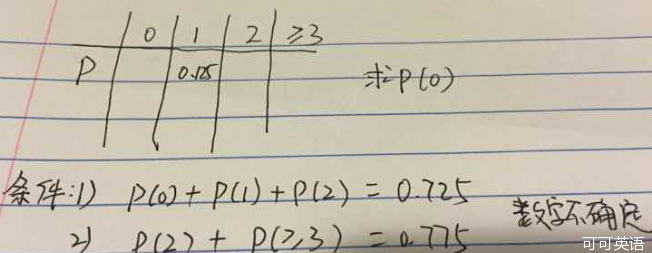 0 1 2 ≥3
P 0.125 求P(0)
条件:1) P(0) + P(1) + P(2) = 0.725
2) P(2) + P(≥3) = 0.775 数字不确定
可可英语